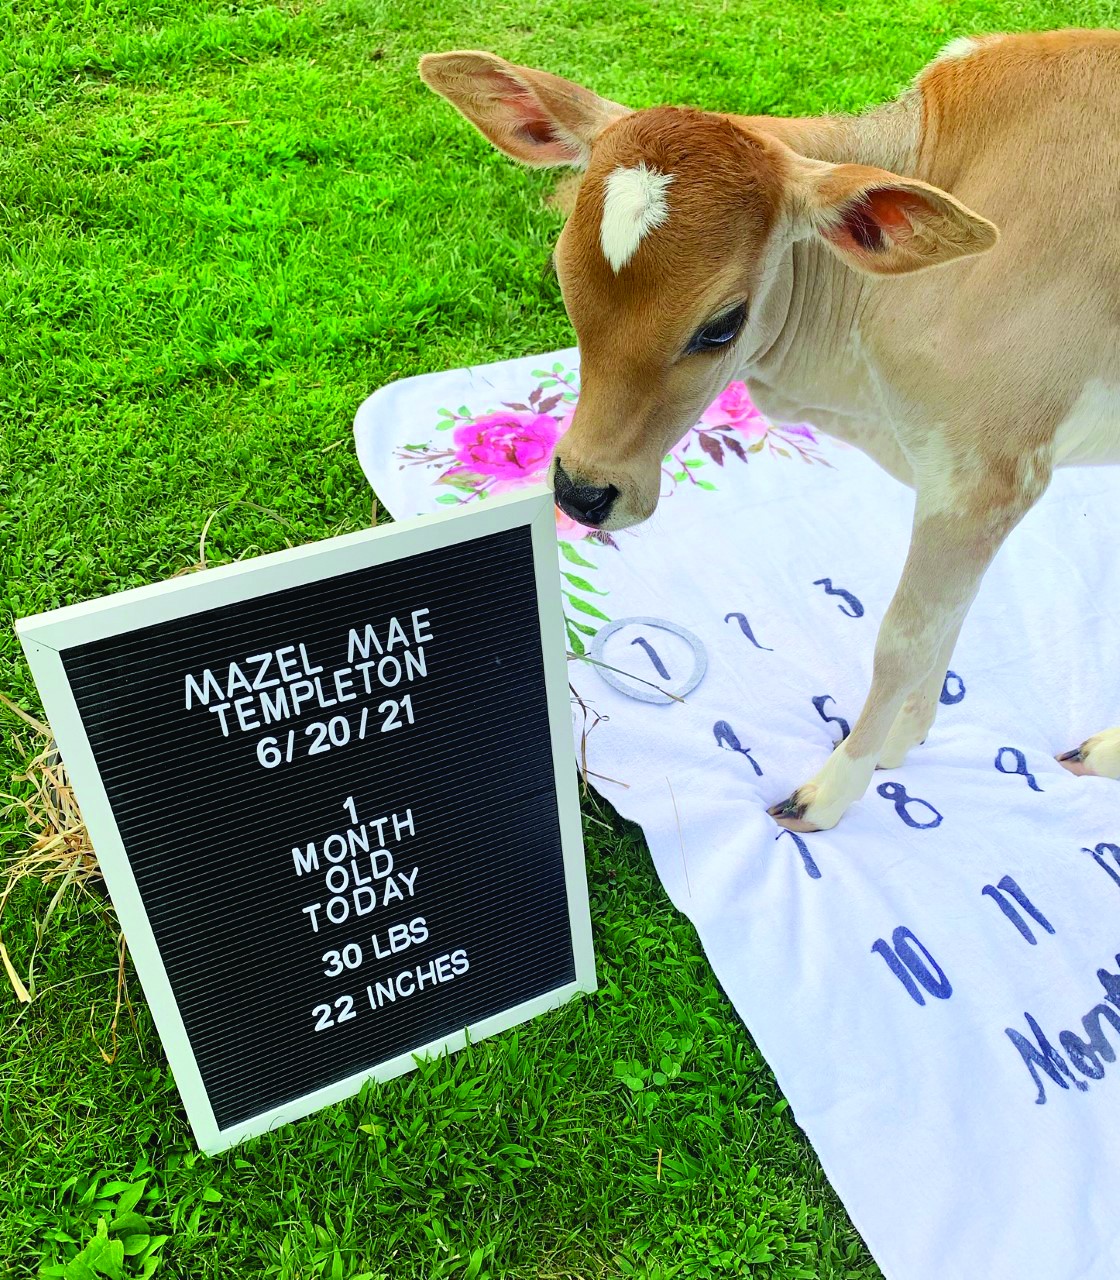 MAZEL MAE
TEMPLETON
6/20/21
1
MONTH
OLD
TODAY
30 LBS
22 INCHES
1 2 3
4 5 6
7 8 9
10 11 12